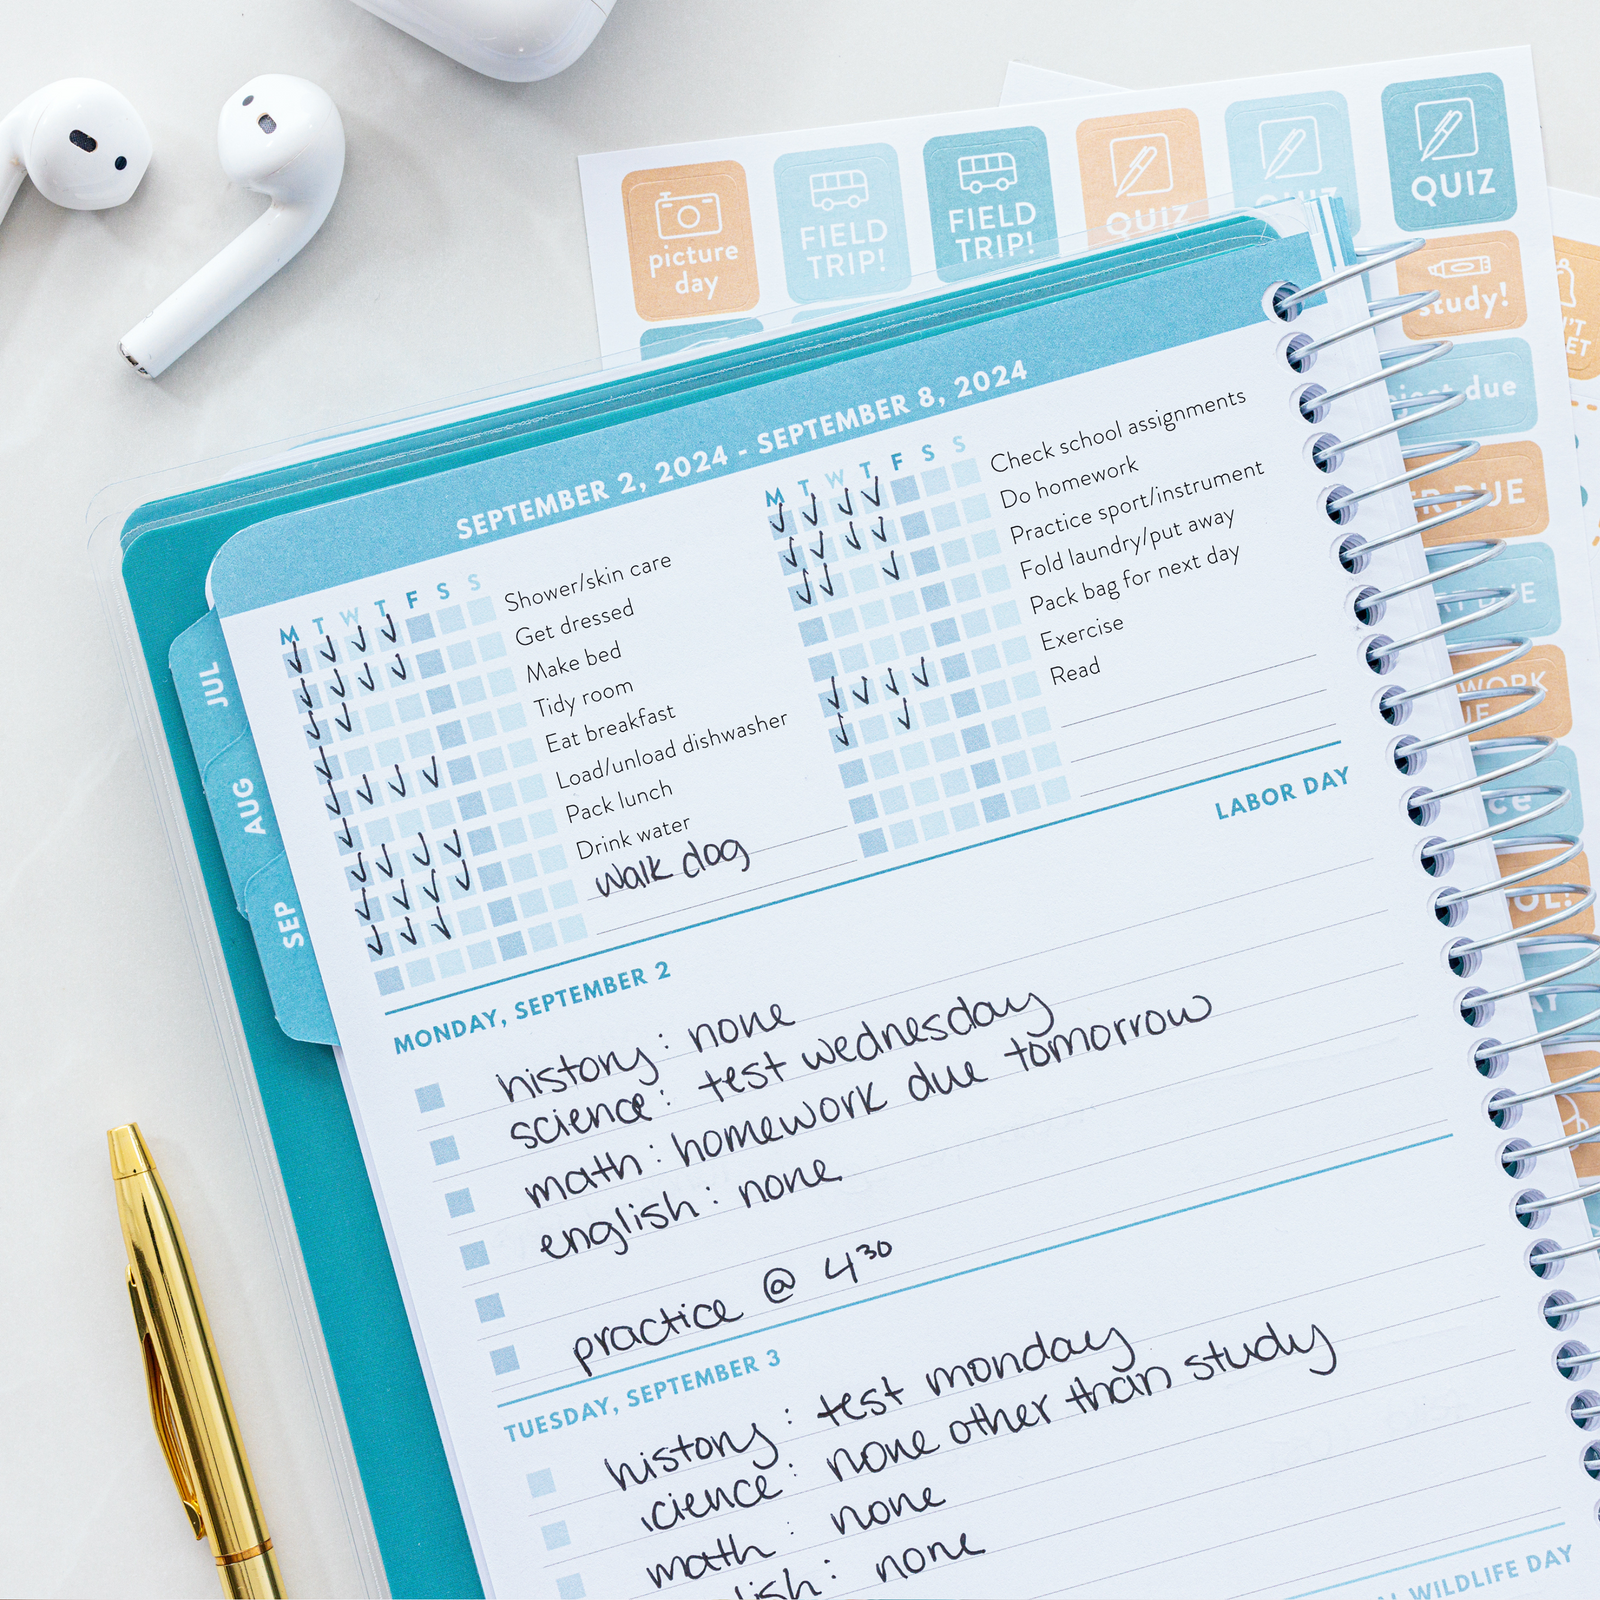 picture
day
FIELD
TRIP!
FIELD
TRIP!
QUIZ
QUIZ
QUIZ
study!
due
DUE
SEPTEMBER 2, 2024 - SEPTEMBER 8, 2024
M T W T F S S
Shower/skin care
Get dressed
Make bed
Tidy room
Eat breakfast
Load/unload dishwasher
Pack lunch
Drink water
walk dog
M T W T F S S
Check school assignments
Do homework
Practice sport/instrument
Fold laundry/put away
Pack bag for next day
Exercise
Read
JUL
AUG
SEP
MONDAY, SEPTEMBER 2
LABOR DAY
history: none
science: test wednesday
math: homework due tomorrow
english: none
practice @ 4³⁰
TUESDAY, SEPTEMBER 3
history: test monday
cience: none other than study
math: none
lish: none
WILDLIFE DAY